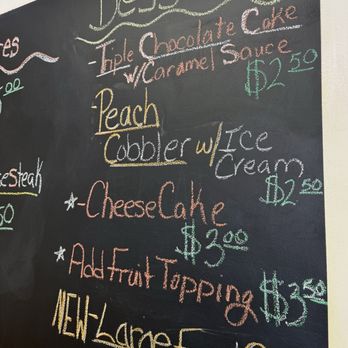 - Triple Chocolate Cake
w/Caramel Sauce
$2.50
- Peach
Cobbler w/ Ice
Cream
$2.50
*-CheeseCake
$3.00
*Add Fruit Topping
$3.50
NEW-Large